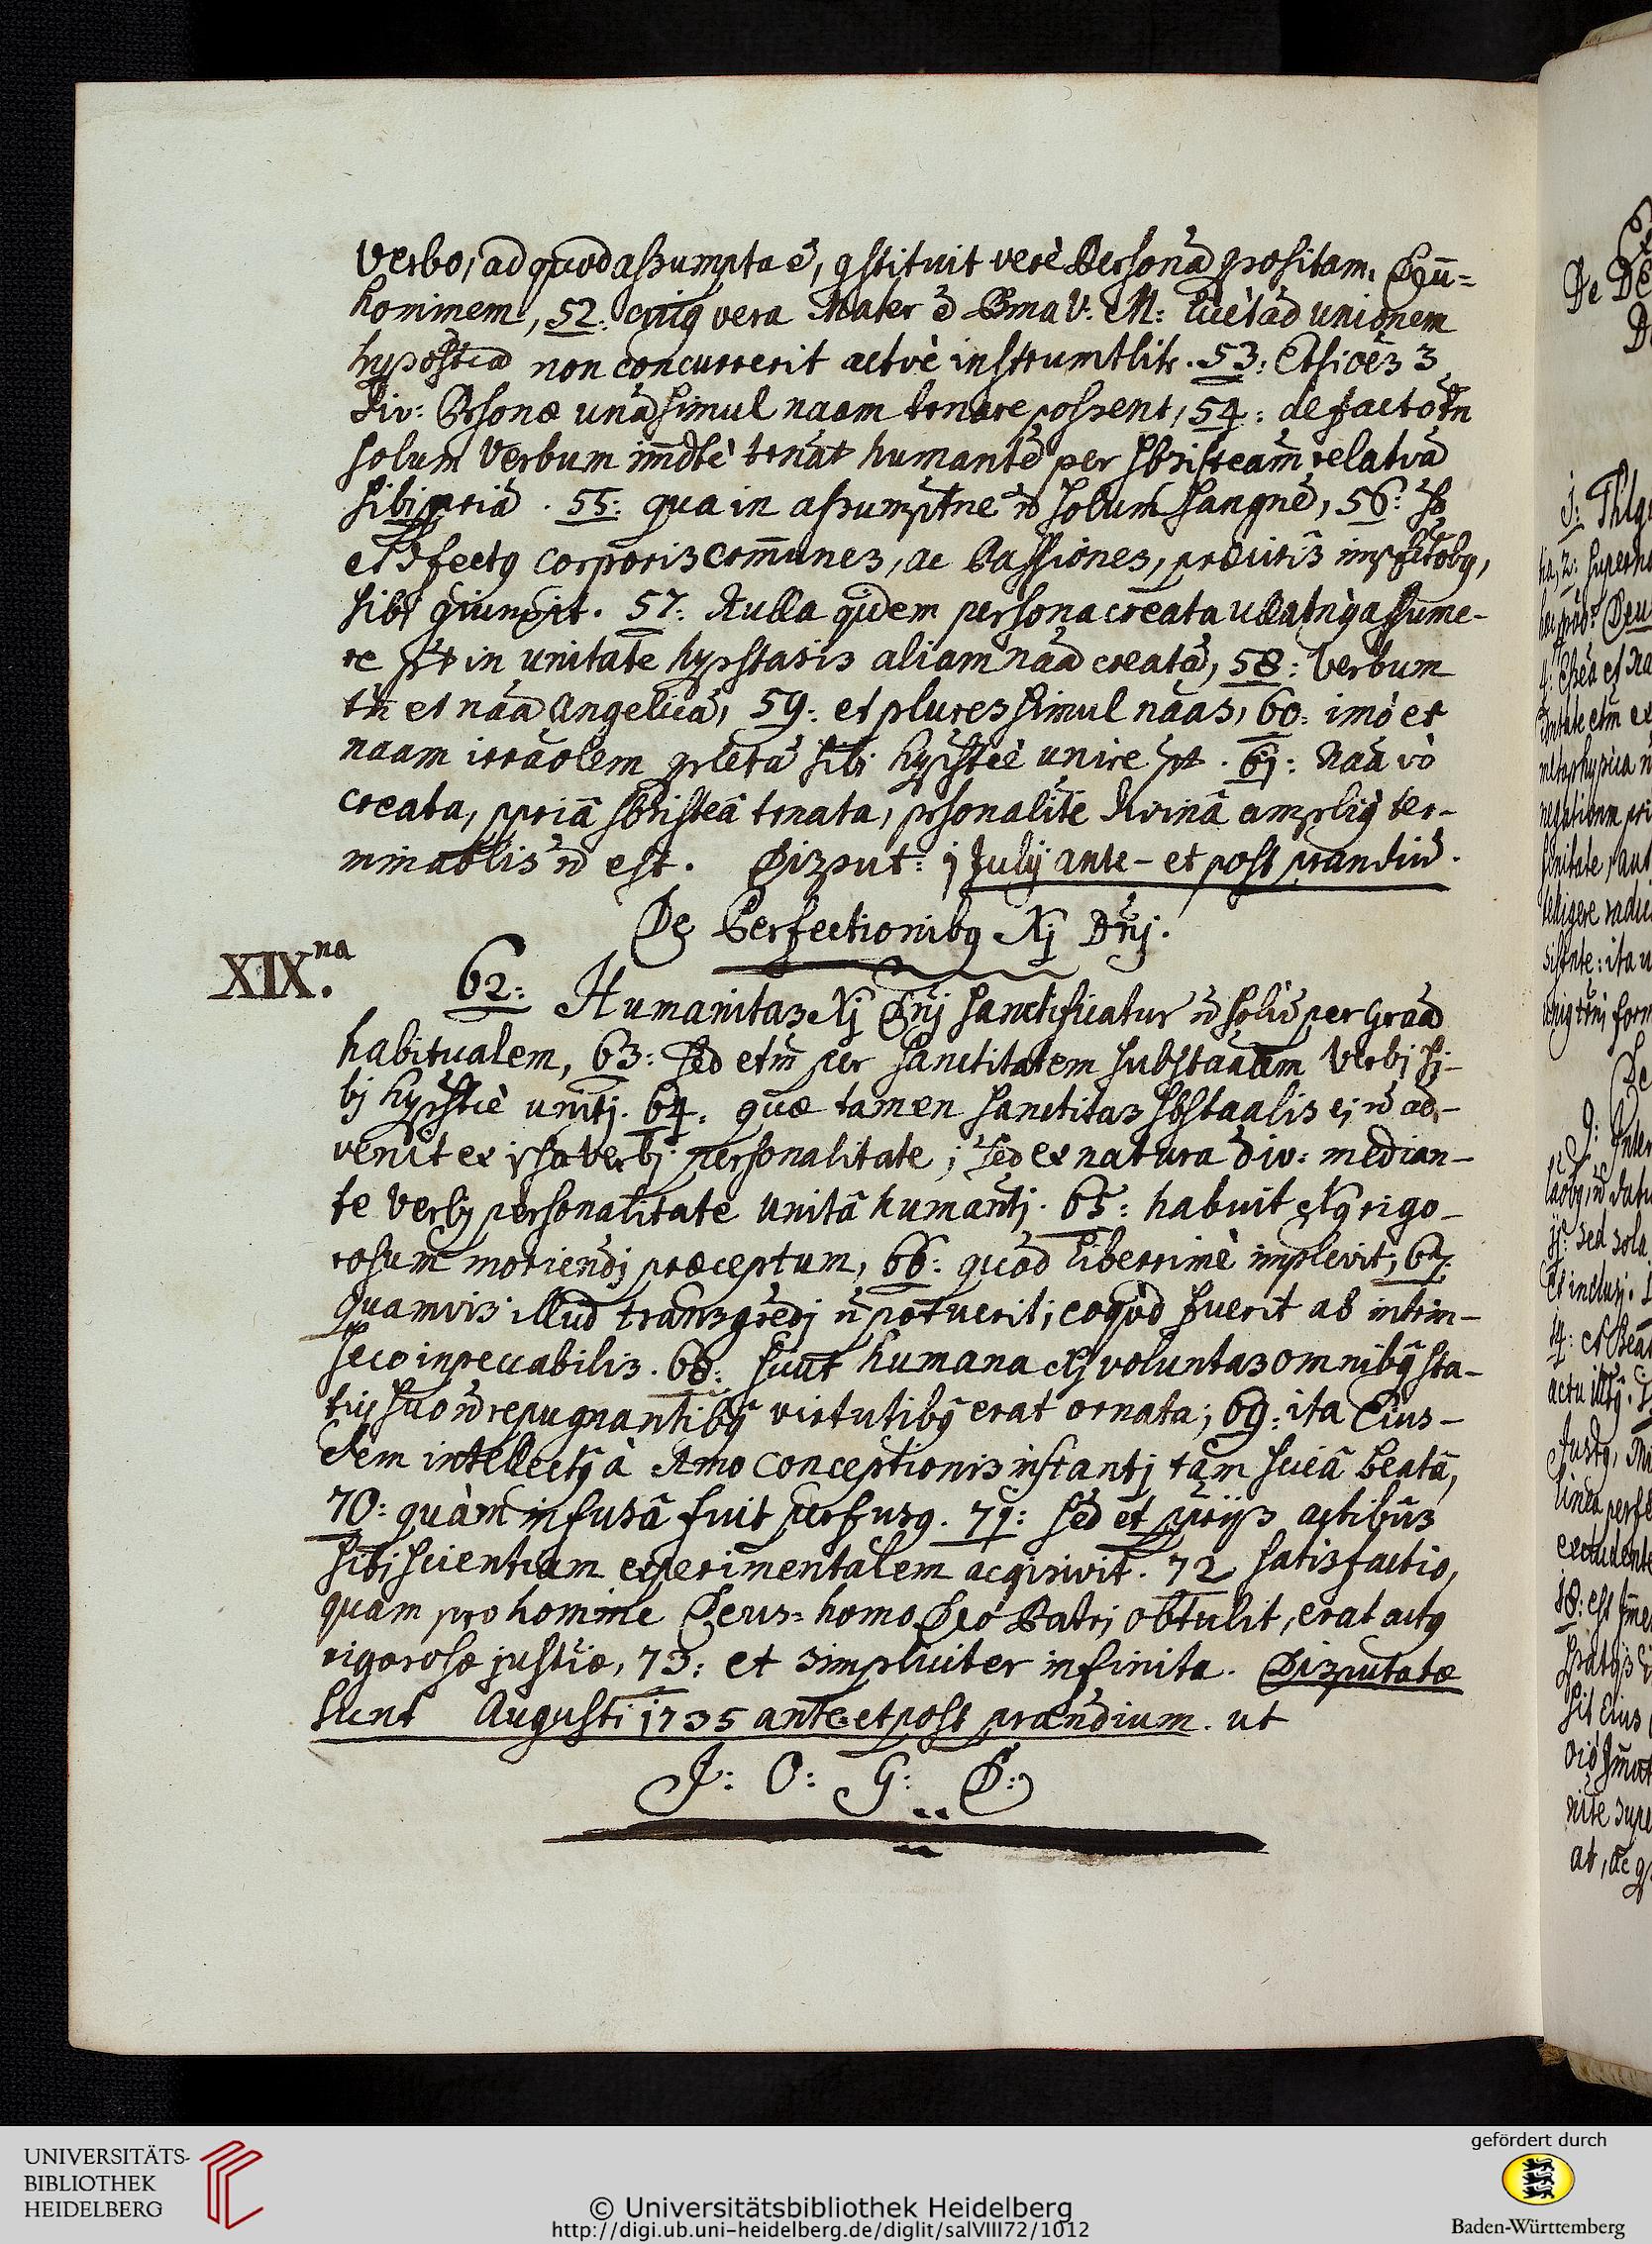 Verbo, ad quod assumpta ē, 9stituit verè Personā 9positam. Deū=
hominem, 52: cui9 vera Mater ē Bma V: M: licèt ad unionem
hypostcā non concurrerit actvè instrumtlitr. 53: Etsi oēs 3
div: Prsonæ unā simul naam trnare possent, 54: de facto tn
solum Verbum imdtè trnat humantē per sbsisteam relatvā
sibi priā. 55: qua in assumptne n̄ solum sangnē, 56: sed
et dfect9 corporis communes, ac Passiones,
sibi 9iunxit. 57: Nulla qidem persona creata
re pt in unitate hypstasis aliam naā creatā, 58: Verbum
tn et naā Angelicā, 59: et plures simul naas, 60: imò et
naam irraōlem sibi hypstcè unire pt. 61: Naā vò
creata, ppriâ sbsisteâ trnata, prsonalite divinâ ampli9 ter-
minabilis n̄ est. Disput: July ante- et post prandiū.
De Perfectionib9 Xj Dnj.
XIX.na
62: Humanitas Xj Dnj sanctificatur n̄ soliū per Graā
habitualem, 63: sed etm per sanctitatem substaalem Verbj si-
bj hypstcè unitj. 64: quæ tamen sanctitas sbstaalis ej n̄ ad-
venit ex ipsa verbj personalitate; sed ex natura div: median-
te Verbj personalitate unitâ humantj. 65: habuit X9 rigo-
rosum moriendj præceptum, 66: quod liberrimè implevit, 67:
quamvis illud transgredj n̄ potuerit; eoqùd fuerit ab intrin-
seco inpeccabilis. 68: sicut humana Xj voluntas omnib9 sta-
tuj suo n̄ repugnantib9 virtutib9 erat ornata; 69: ita Eius-
dem intellect9 à 1mo conceptionis instantj tam sciēâ beatâ,
70: quàm infusâ fuit perfus9. 71: sed et priis actibus
sibj scientiam experimentalem acqisivit. 72 satisfactio,
quam pro homine Deus=homo Deo Patrj obtulit, erat act9
rigorosæ justiæ, 73: et simpliciter infinita. Disputatæ
sunt Augusti 1735 ante et post prandium. ut
J: O: G: D:
UNIVERSITÄTS-
BIBLIOTHEK
HEIDELBERG
© Universitätsbibliothek Heidelberg
http://digi.ub.uni-heidelberg.de/diglit/salVIII72/1012
gefördert durch
Baden-Württemberg